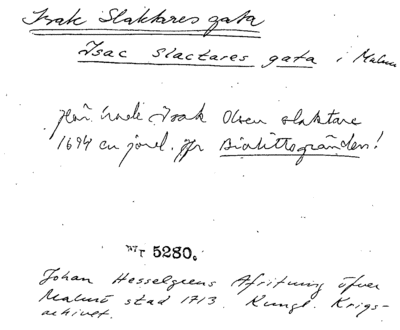 Isak Slaktares gata
Isac Slactares gata i Malmö
Här hade Isak Olsen slaktare
1694 en jord. jfr Bialittsgränden!
NTT 5280.
Johan Hesselgrens Afritning öfver
Malmö stad 1713. Kungl. Krigs-
arkivet.